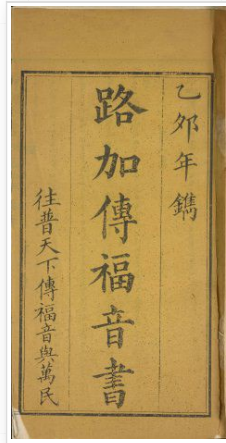 乙夘年鐫
路加傳福音書
往普天下傳福音與萬民